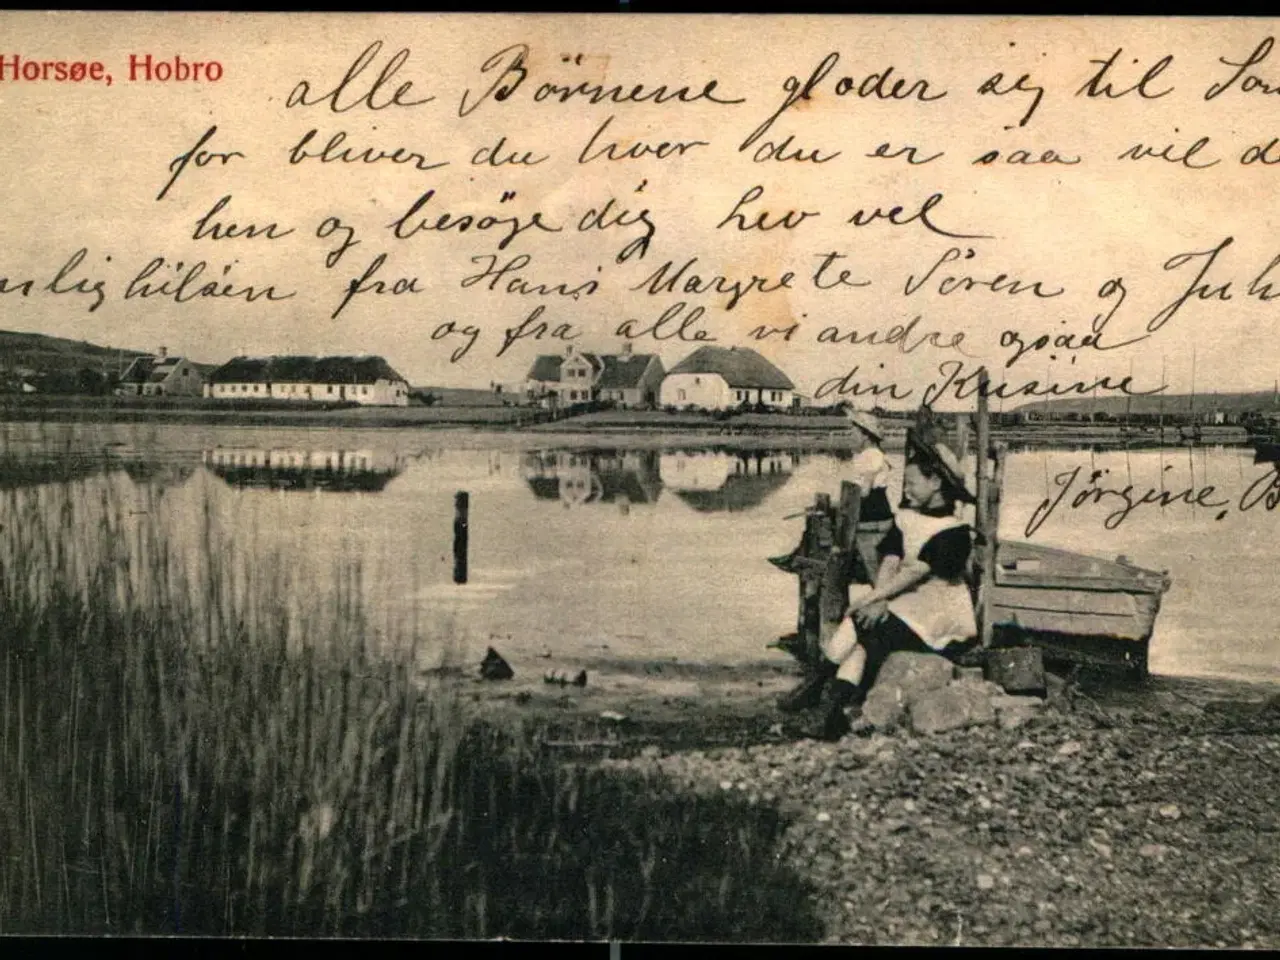 Horsøe, Hobro
alle Börnene gloder sig til
for bliver du hvor du er saa vil
hen og besöge dig lev vel
fra Hans Margrete Sören og
og fra alle vi andre ogsaa
din Kusine
Jörgine